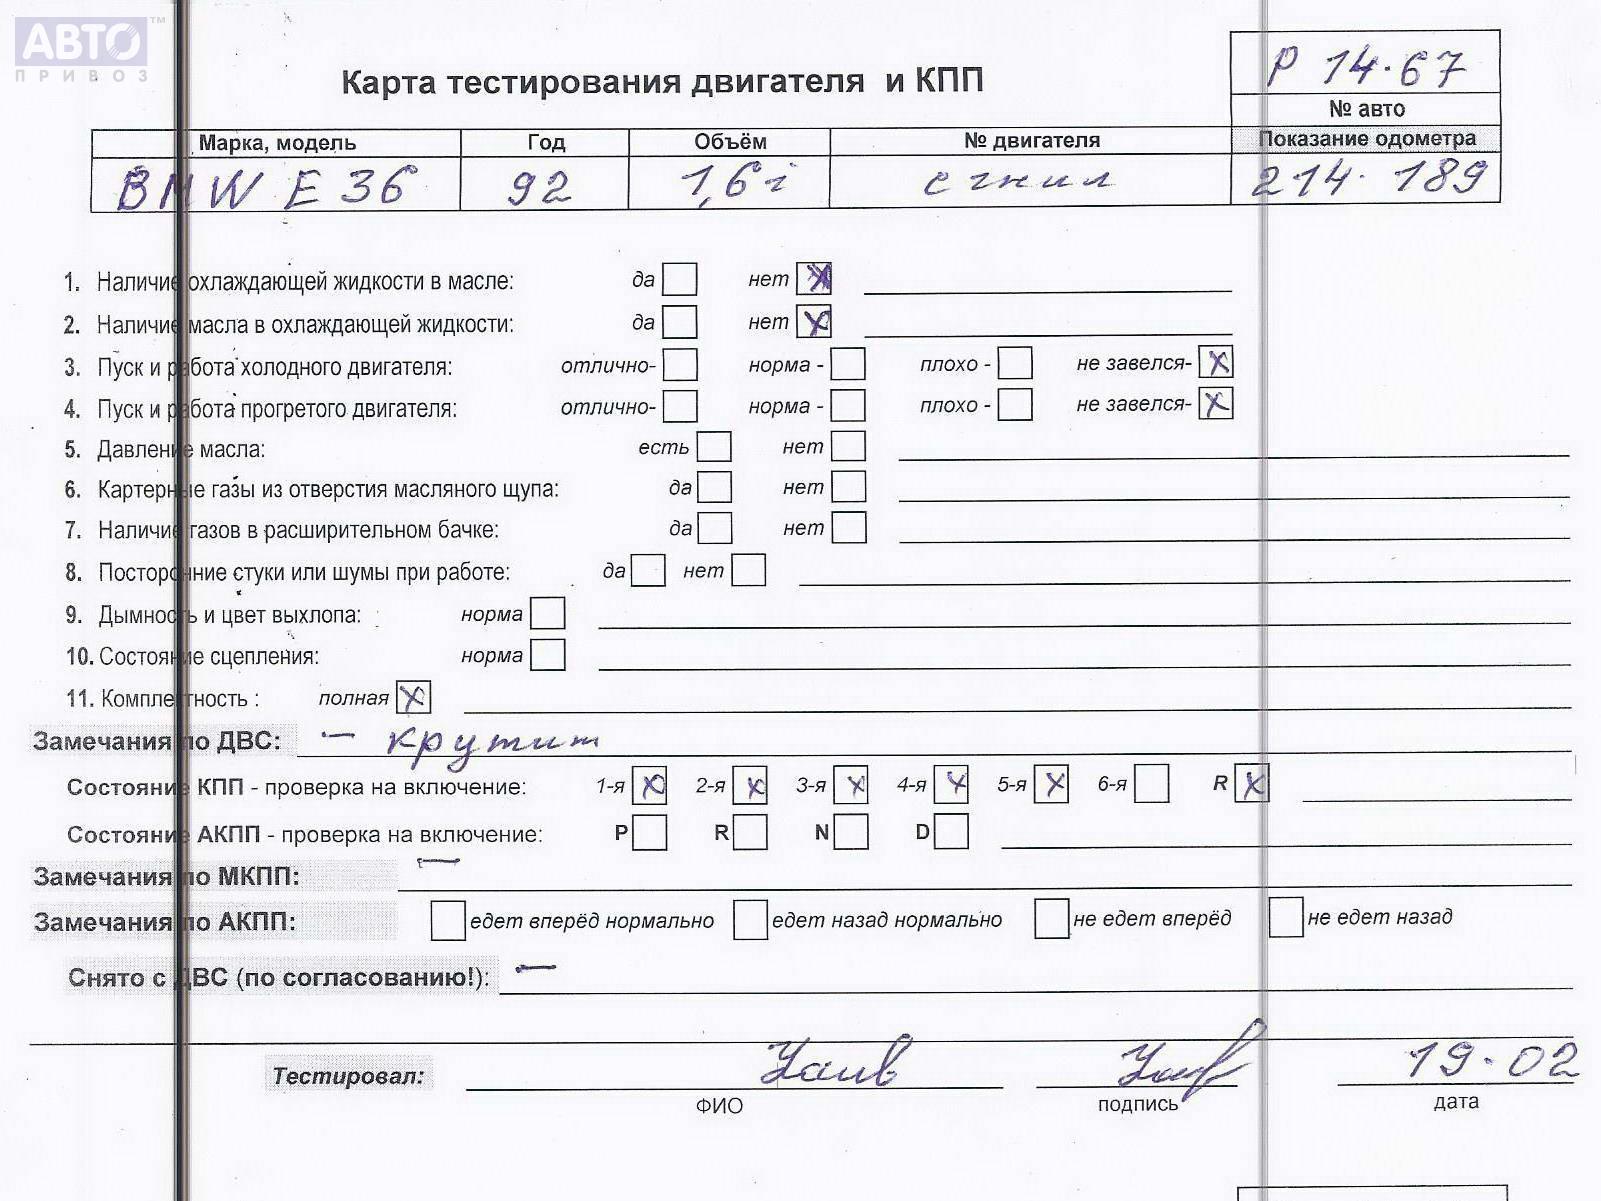 АВТО™
ПРИВОЗ
Р 14·67
Карта тестирования двигателя и КПП
№ авто
Марка, модель Год Объём № двигателя Показание одометра
BMW E36 92 1,6i сгнил 214·189
1. Наличие охлаждающей жидкости в масле: да нет X
2. Наличие масла в охлаждающей жидкости: да нет X
3. Пуск и работа холодного двигателя: отлично- норма - плохо - не завелся- X
4. Пуск и работа прогретого двигателя: отлично- норма - плохо - не завелся- X
5. Давление масла: есть нет
6. Картерные газы из отверстия масляного щупа: да нет
7. Наличие газов в расширительном бачке: да нет
8. Посторонние стуки или шумы при работе: да нет
9. Дымность и цвет выхлопа: норма
10. Состояние сцепления: норма
11. Комплектность : полная X
Замечания по ДВС: — крутит
Состояние КПП - проверка на включение: 1-я X 2-я X 3-я X 4-я X 5-я X 6-я R X
Состояние АКПП - проверка на включение: P R N D
Замечания по МКПП: —
Замечания по АКПП: едет вперёд нормально едет назад нормально не едет вперёд не едет назад
Снято с ДВС (по согласованию!): —
Тестировал: 19·02
ФИО подпись дата